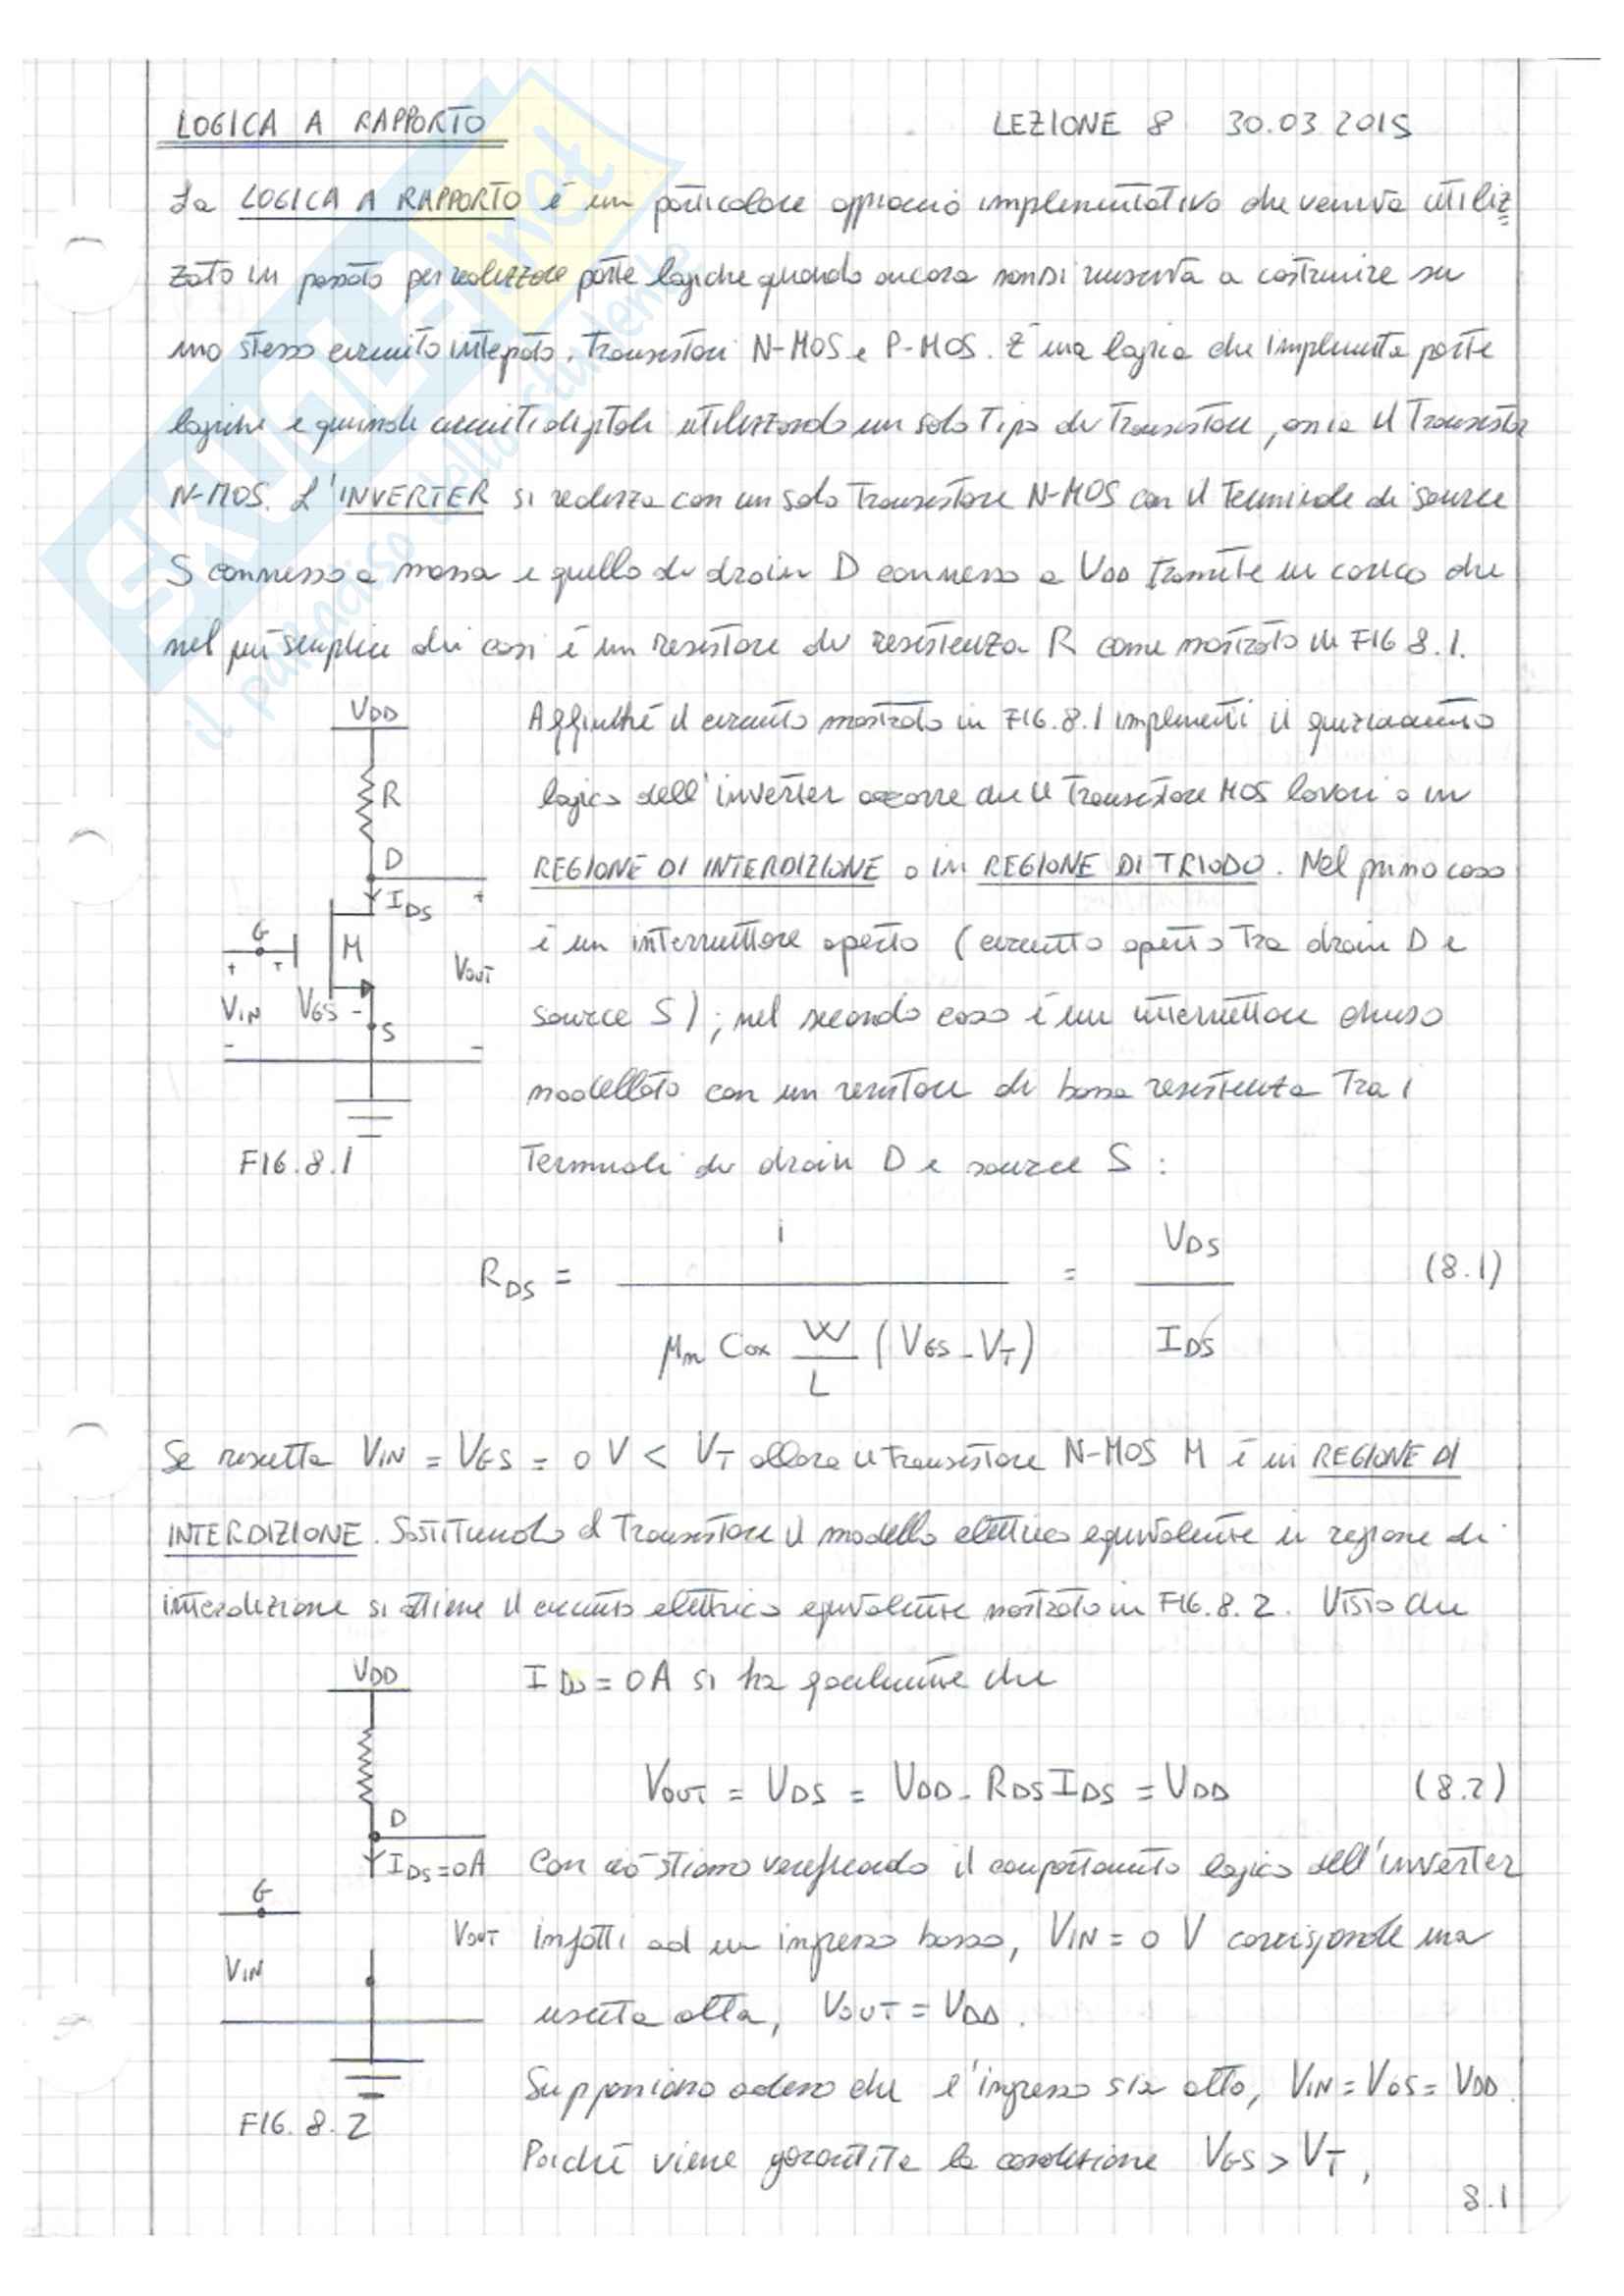 LOGICA A RAPPORTO
LEZIONE 8 30.03 2015
La LOGICA A RAPPORTO è un particolare approccio implementativo che veniva utiliz
zato in passato per realizzare porte logiche quando ancora non si riusciva a costruire su
uno stesso circuito integrato, transistori N-MOS e P-MOS. È una logica che implementa porte
logiche e quindi circuiti digitali utilizzando un solo tipo di transistore, ossia il transistor
N-MOS. L'INVERTER si realizza con un solo transistore N-MOS con il terminale di source
S connesso a massa e quello di drain D connesso a VDD tramite un carico che
nel più semplice dei casi è un resistore di resistenza R come mostrato in FIG 8.1.
VDD
R
D
IDS
+
G
M
+
VOUT
VIN
VGS -
S
-
-
FIG.8.1
Affinché il circuito mostrato in FIG.8.1 implementi il funzionamento
logico dell'inverter occorre che il transistore MOS lavori o in
REGIONE DI INTERDIZIONE o in REGIONE DI TRIODO. Nel primo caso
è un interruttore aperto (circuito aperto tra drain D e
source S); nel secondo caso è un interruttore chiuso
modellato con un resistore di bassa resistenza tra i
terminali di drain D e source S :
RDS = 1 / μn Cox W/L (VGS - VT) = VDS / IDS (8.1)
Se risulta VIN = VGS = 0 V < VT allora il transistore N-MOS M è in REGIONE DI
INTERDIZIONE. Sostituendo al transistore il modello elettrico equivalente in regione di
interdizione si ottiene il circuito elettrico equivalente mostrato in FIG.8.2. Visto che
VDD
D
IDS=0A
G
VOUT
VIN
FIG.8.2
IDS = 0A si ha facilmente che
VOUT = VDS = VDD - RDS IDS = VDD (8.2)
Con ciò stiamo verificando il comportamento logico dell'inverter
infatti ad un ingresso basso, VIN = 0 V corrisponde una
uscita alta, VOUT = VDD.
Supponiamo adesso che l'ingresso sia alto, VIN = VGS = VDD.
Poiché viene garantita la condizione VGS > VT,
8.1
SKUOLA.net
il paradiso dello studente